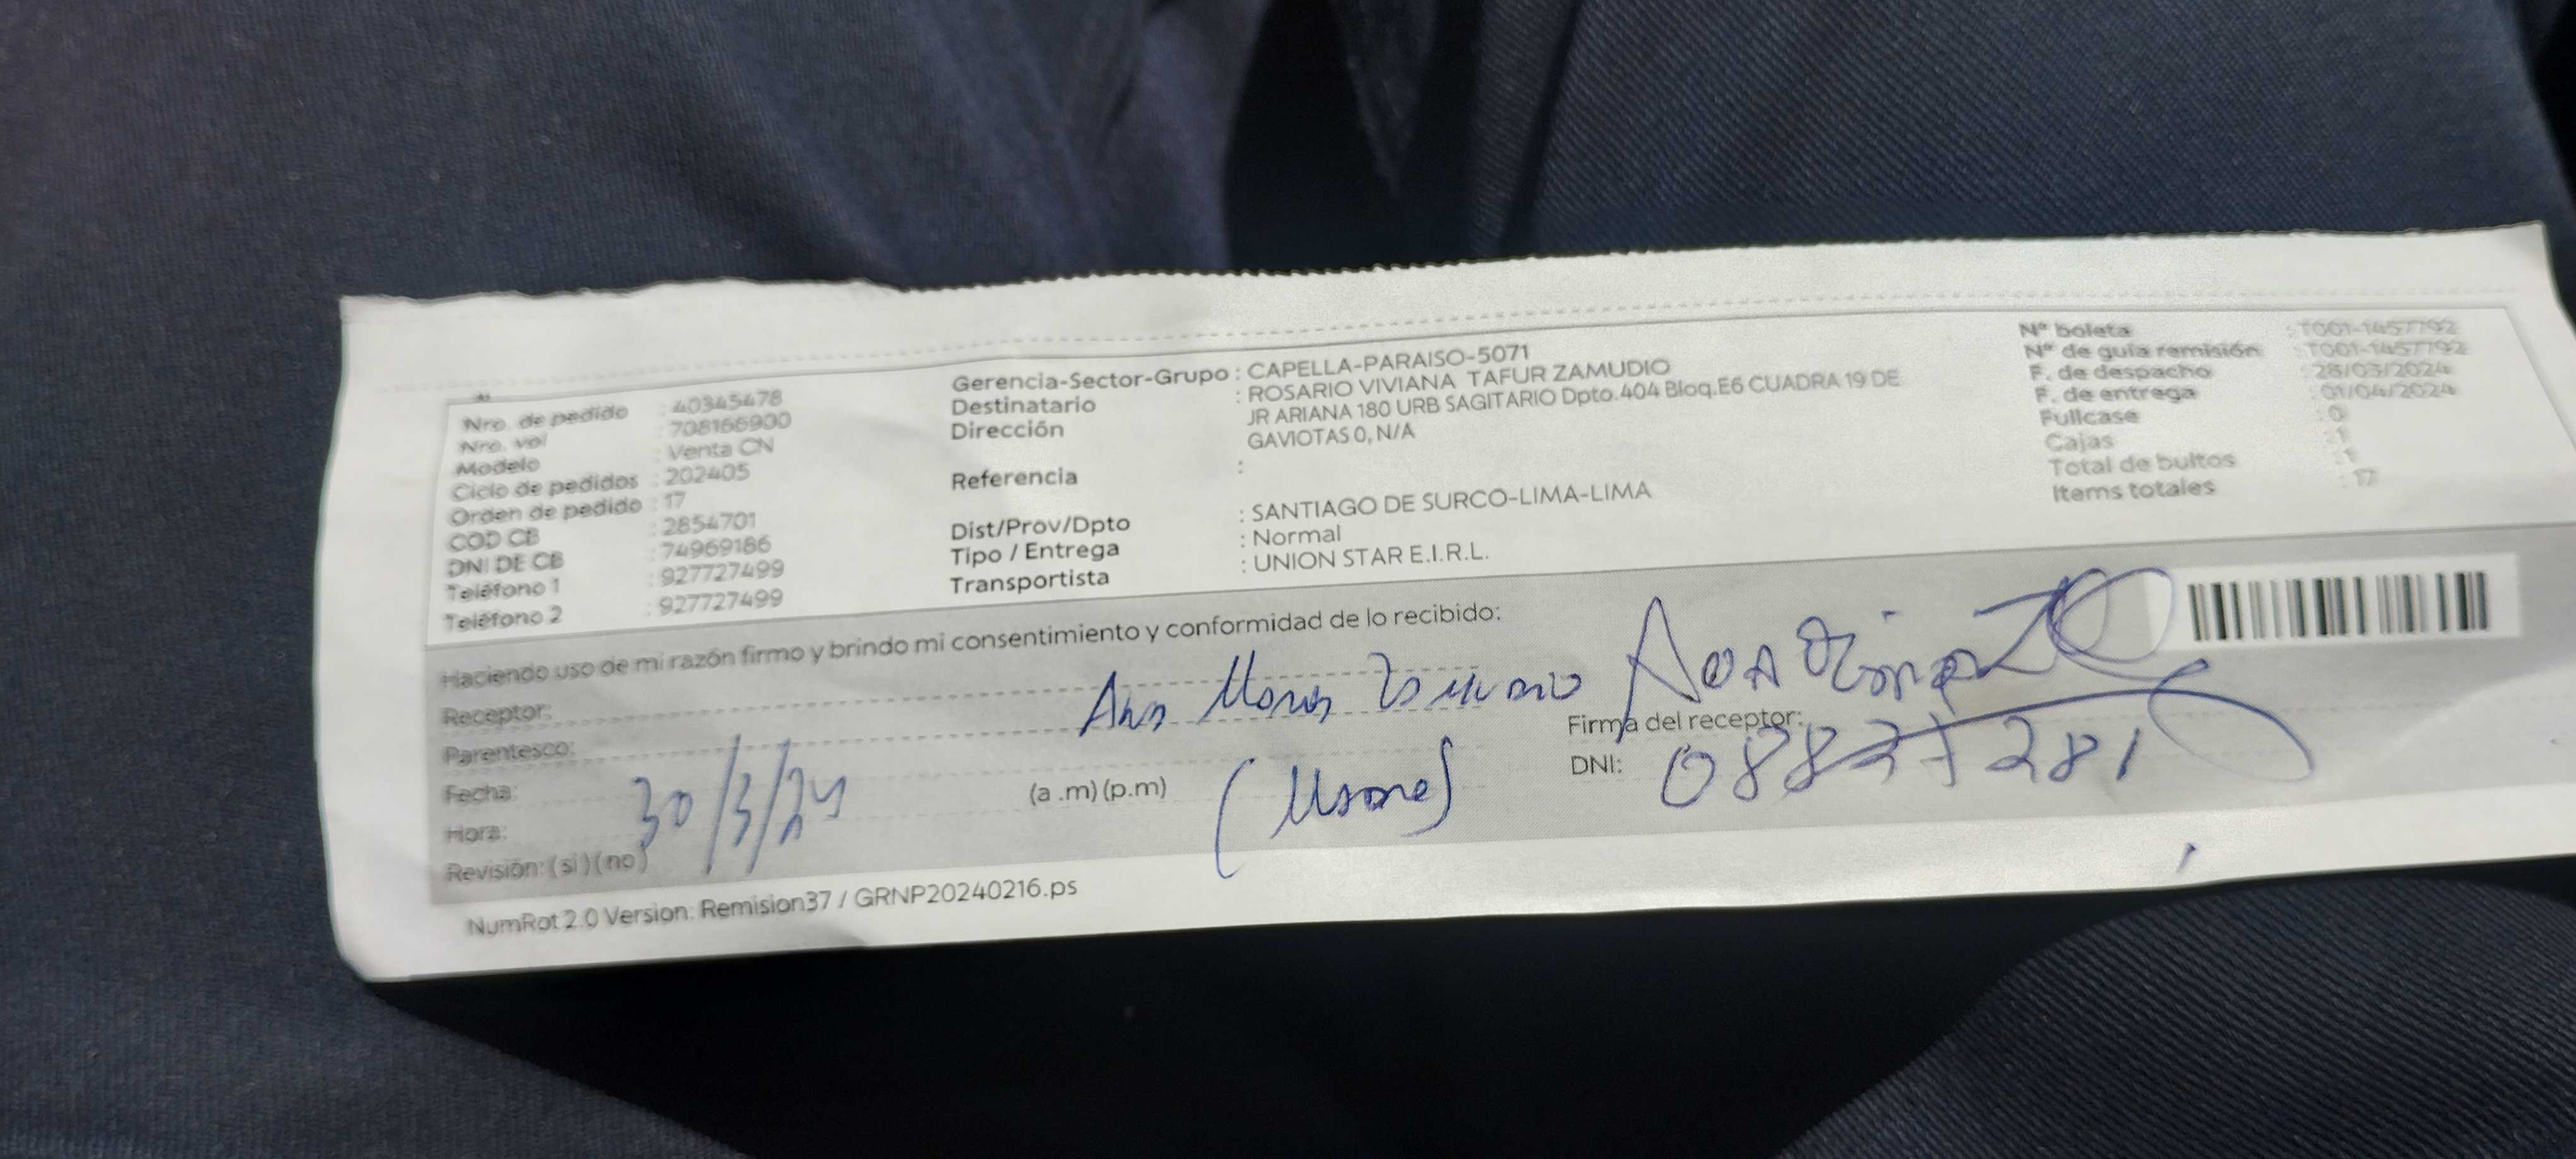 Nro. de pedido : 40345478
Nro. vol : 708166900
Modelo : Venta CN
Ciclo de pedidos : 202405
Orden de pedido : 17
COD CB : 2854701
DNI DE CB : 74969186
Teléfono 1 : 927727499
Teléfono 2 : 927727499
Gerencia-Sector-Grupo : CAPELLA-PARAISO-5071
Destinatario : ROSARIO VIVIANA TAFUR ZAMUDIO
Dirección JR ARIANA 180 URB SAGITARIO Dpto.404 Bloq.E6 CUADRA 19 DE
GAVIOTAS 0, N/A
Referencia :
Dist/Prov/Dpto : SANTIAGO DE SURCO-LIMA-LIMA
Tipo / Entrega : Normal
Transportista : UNION STAR E.I.R.L.
Nº boleta : T001-1457792
Nº de guía remisión : T001-1457792
F. de despacho : 28/03/2024
F. de entrega : 01/04/2024
Fullcase : 0
Cajas : 1
Total de bultos : 1
Items totales : 17
Haciendo uso de mi razón firmo y brindo mi consentimiento y conformidad de lo recibido:
Receptor:
Parentesco:
Fecha: 30/3/24
Hora: (a .m) (p.m)
Revisión: (si) (no)
Firma del receptor:
DNI: 08837281
NumRot 2.0 Version: Remision37 / GRNP20240216.ps